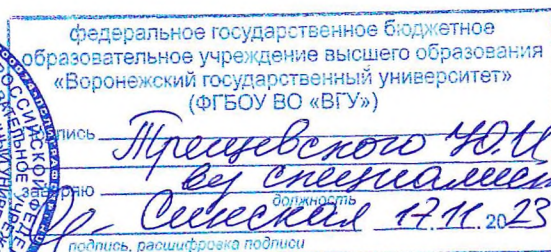 федеральное государственное бюджетное
образовательное учреждение высшего образования
«Воронежский государственный университет»
(ФГБОУ ВО «ВГУ»)
пись Трещевского Ю.И
заверяю вед специалист
должность
Синская 17.11.2023
подпись, расшифровка подписи